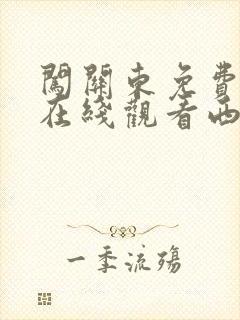 闖關東免費
在綫觀看西
一季流殤